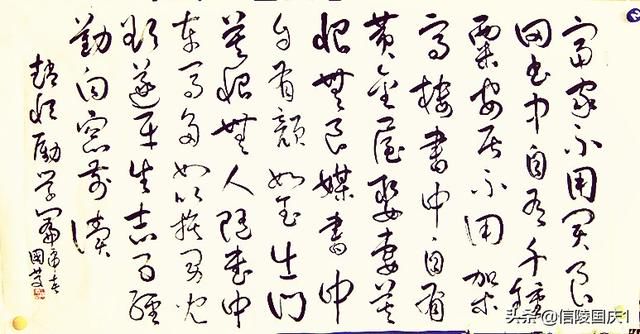 富家不用买良
田书中自有千鍾
粟安居不用架
高楼書中自有
黄金屋娶妻莫
恨無良媒書中
自有颜如玉出门
莫恨無人随书中
车马多如簇男兒
欲遂平生志五经
勤向窗前读
赵恒励学篇
国慶
头条@信陵国庆1